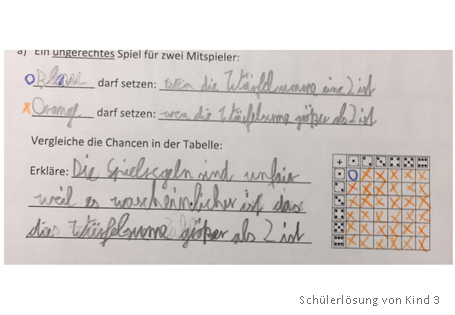 a) Ein ungerechtes Spiel für zwei Mitspieler:
Blau darf setzen: wen die Würfelsumme eine 2 ist
Orang darf setzen: wen die Würfelsumme größer als 2 ist
Vergleiche die Chancen in der Tabelle:
Erkläre: Die Spielregeln sind unfair
weil es warscheinlicher ist das
die Würfelsumme größer als 2 ist
Schülerlösung von Kind 3